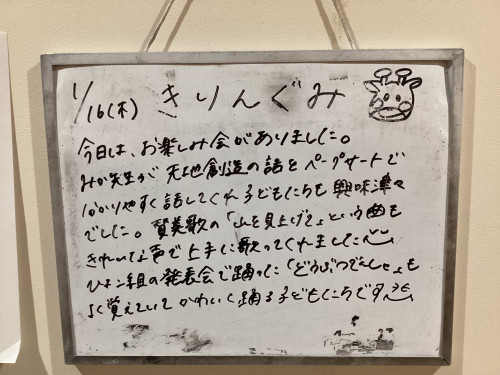 1/16(木) きりんぐみ
今日は、お楽しみ会がありました。
みか先生が 天地創造の話をペープサートで
分かりやすく話してくれ子どもたちも興味津々
でした。賛美歌の「山を見上げて」という曲も
きれいな声で上手に歌ってくれました
ひよこ組の発表会で踊った「どうぶつでんしゃ」も
よく覚えていてかわいく踊る子どもたちです